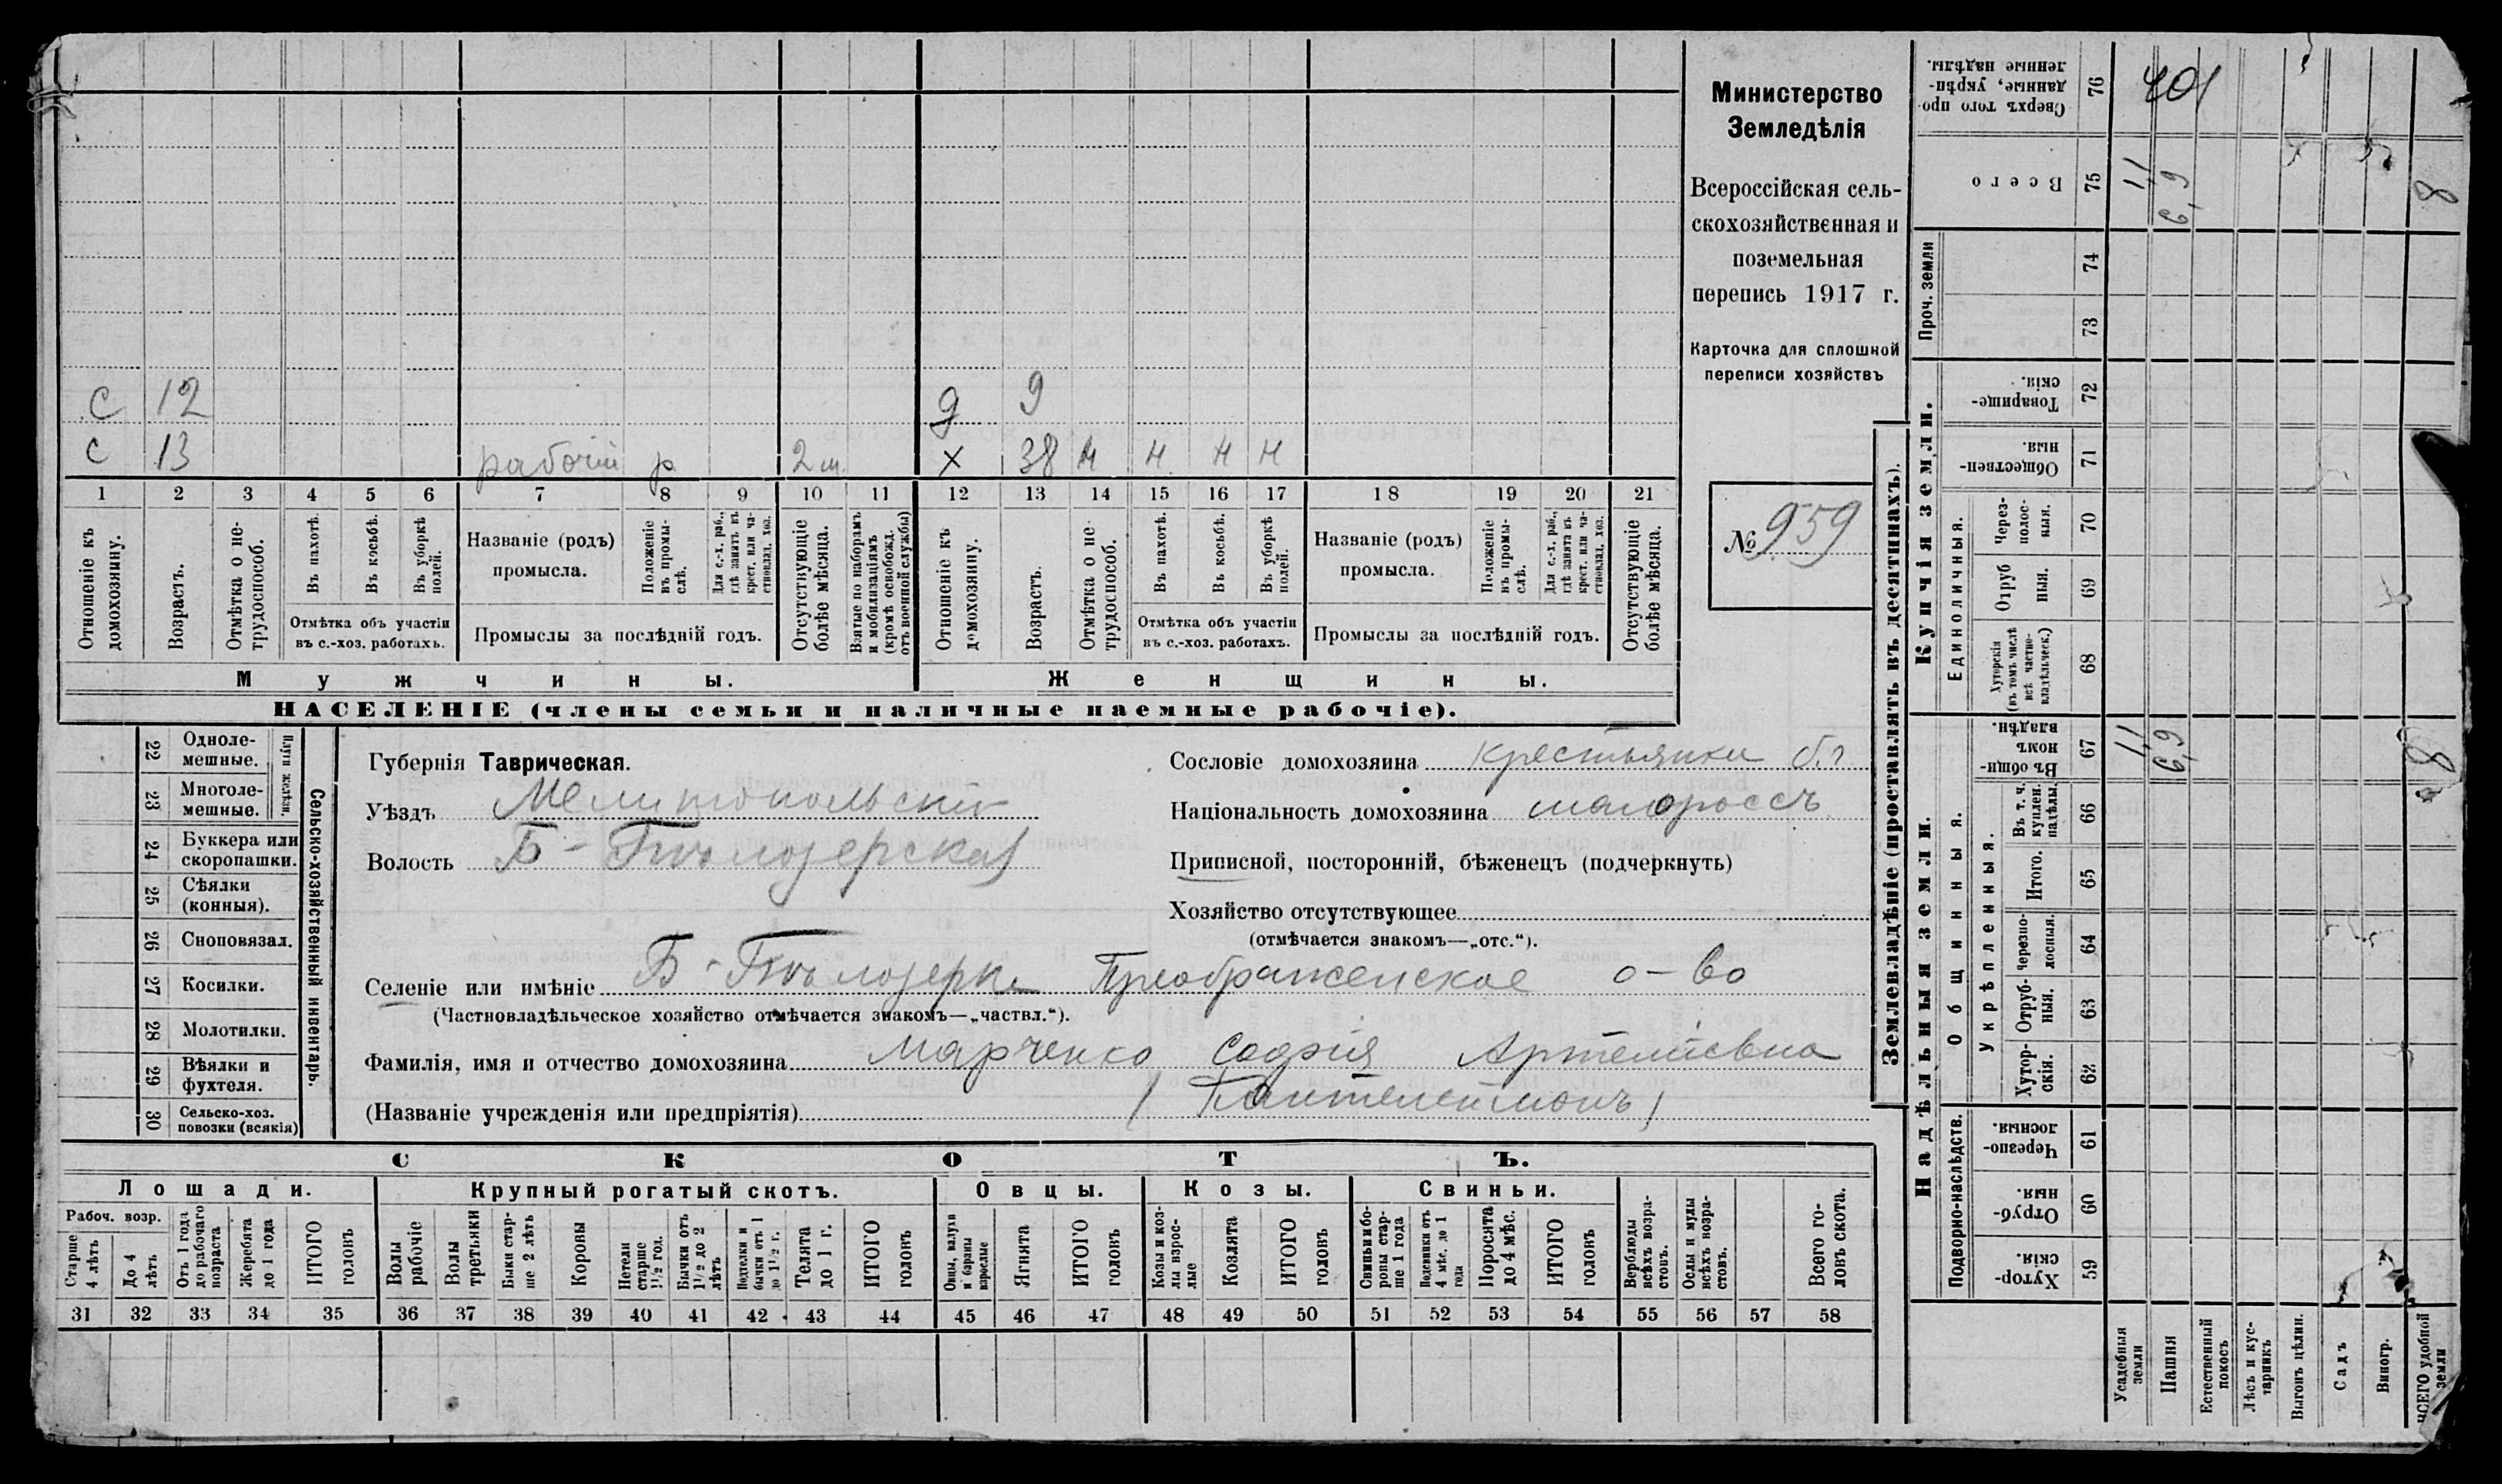 Министерство
Земледѣлія
Всероссійская сель-
скохозяйственная и
поземельная
перепись 1917 г.
Карточка для сплошной
переписи хозяйствъ
№ 959
С 12
С 13 рабочій р 2 м.
д 9
х 38 н н н н
1 2 3 4 5 6 7 8 9 10 11 12 13 14 15 16 17 18 19 20 21
Отношеніе къ домохозяину.
Возрастъ.
Отмѣтка о не-трудоспособ.
Въ пахотѣ.
Въ косьбѣ.
Въ уборкѣ полей.
Отмѣтка объ участіи
въ с.-хоз. работахъ.
Названіе (родъ)
промысла.
Положеніе въ промы-слѣ.
Для с.-х. раб., гдѣ занятъ въ крест. или ча-стновлад. хоз.
Промыслы за послѣдній годъ.
Отсутствующіе болѣе мѣсяца.
Взятые по наборамъ и мобилизаціямъ (кромѣ освобожд. отъ военной службы)
Отношеніе къ домохозяину.
Возрастъ.
Отмѣтка о не-трудоспособ.
Въ пахотѣ.
Въ косьбѣ.
Въ уборкѣ полей.
Отмѣтка объ участіи
въ с.-хоз. работахъ.
Названіе (родъ)
промысла.
Положеніе въ промы-слѣ.
Для с.-х. раб., гдѣ занята въ крест. или ча-стновлад. хоз.
Промыслы за послѣдній годъ.
Отсутствующіе болѣе мѣсяца.
Мужчины.
Женщины.
НАСЕЛЕНІЕ (члены семьи и наличные наемные рабочіе).
22 Одноле-мешные.
23 Многоле-мешные.
Плуги желѣзн.
24 Буккера или скоропашки.
25 Сѣялки (конныя).
26 Сноповязал.
27 Косилки.
28 Молотилки.
29 Вѣялки и фухтеля.
30 Сельско-хоз. повозки (всякія)
Сельско-хозяйственный инвентарь.
Губернія Таврическая.
Уѣздъ Мелитопольскій
Волость Б-Бѣлозерская
Сословіе домохозяина крестьянка
Національность домохозяина малороссъ
Приписной, посторонній, бѣженецъ (подчеркнуть)
Хозяйство отсутствующее
(отмѣчается знакомъ—„отс.“).
Селеніе или имѣніе Б-Бѣлозерка Преображенское о-во
(Частновладѣльческое хозяйство отмѣчается знакомъ—„частвл.“).
Фамилія, имя и отчество домохозяина Марченко Софія Артеміевна
(Названіе учрежденія или предпріятія) (Пантелеимонъ)
СКОТЪ.
Лошади.
Крупный рогатый скотъ.
Овцы.
Козы.
Свиньи.
Рабоч. возр.
Старше 4 лѣтъ
До 4 лѣтъ
Отъ 1 года до рабочаго возраста
Жеребята до 1 года
ИТОГО головъ
Волы рабочіе
Волы третьяки
Быки стар-ше 2 лѣтъ
Коровы
Нетели старше 1½ год.
Бычки отъ 1½ до 2 лѣтъ
Подтелки и бычки отъ 1 до 1½ г.
Телята до 1 г.
ИТОГО головъ
Овцы, валухи и бараны взрослые
Ягнята
ИТОГО головъ
Козы и коз-лы взрос-лые
Козлята
ИТОГО головъ
Свиньи и бо-ровы стар-ше 1 года
Подсвинки отъ 4 мѣс. до 1 года
Поросята до 4 мѣс.
ИТОГО головъ
Верблюды всѣхъ возра-стовъ.
Ослы и мулы всѣхъ возра-стовъ.
Всего го-ловъ скота.
31 32 33 34 35 36 37 38 39 40 41 42 43 44 45 46 47 48 49 50 51 52 53 54 55 56 57 58
Землевладѣніе (проставлять въ десятинахъ).
Сверхъ того про-данные, укрѣп-ленные надѣлы.
76
Всего
75 1,1 6,9 8
Проч. земли
74
73
Купчія земли.
Товарище-скія.
72
Обществен-ныя.
71
Единоличныя.
Через-полос-ныя.
70
Отруб-ныя.
69
Хуторскія (въ томъ числѣ всѣ частно-владѣльческ.)
68
Надѣльныя земли.
Общинныя.
Въ общин-номъ владѣн.
67 1,1 6,9 8
Укрѣпленныя.
Въ т. ч. куплен. надѣлы.
66
Итого.
65
Черезпо-лосныя.
64
Отруб-ныя.
63
Хутор-скія.
62
Подворно-наслѣдств.
Черезпо-лосныя.
61
Отруб-ныя.
60
Хутор-скія.
59
Усадебныя земли
Пашня
Естественный покосъ
Лѣсъ и кус-тарникъ
Выгонъ цѣлин.
Садъ
Виногр.
ВСЕГО удобной земли